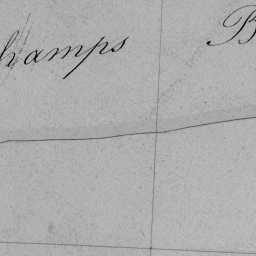 hamps B